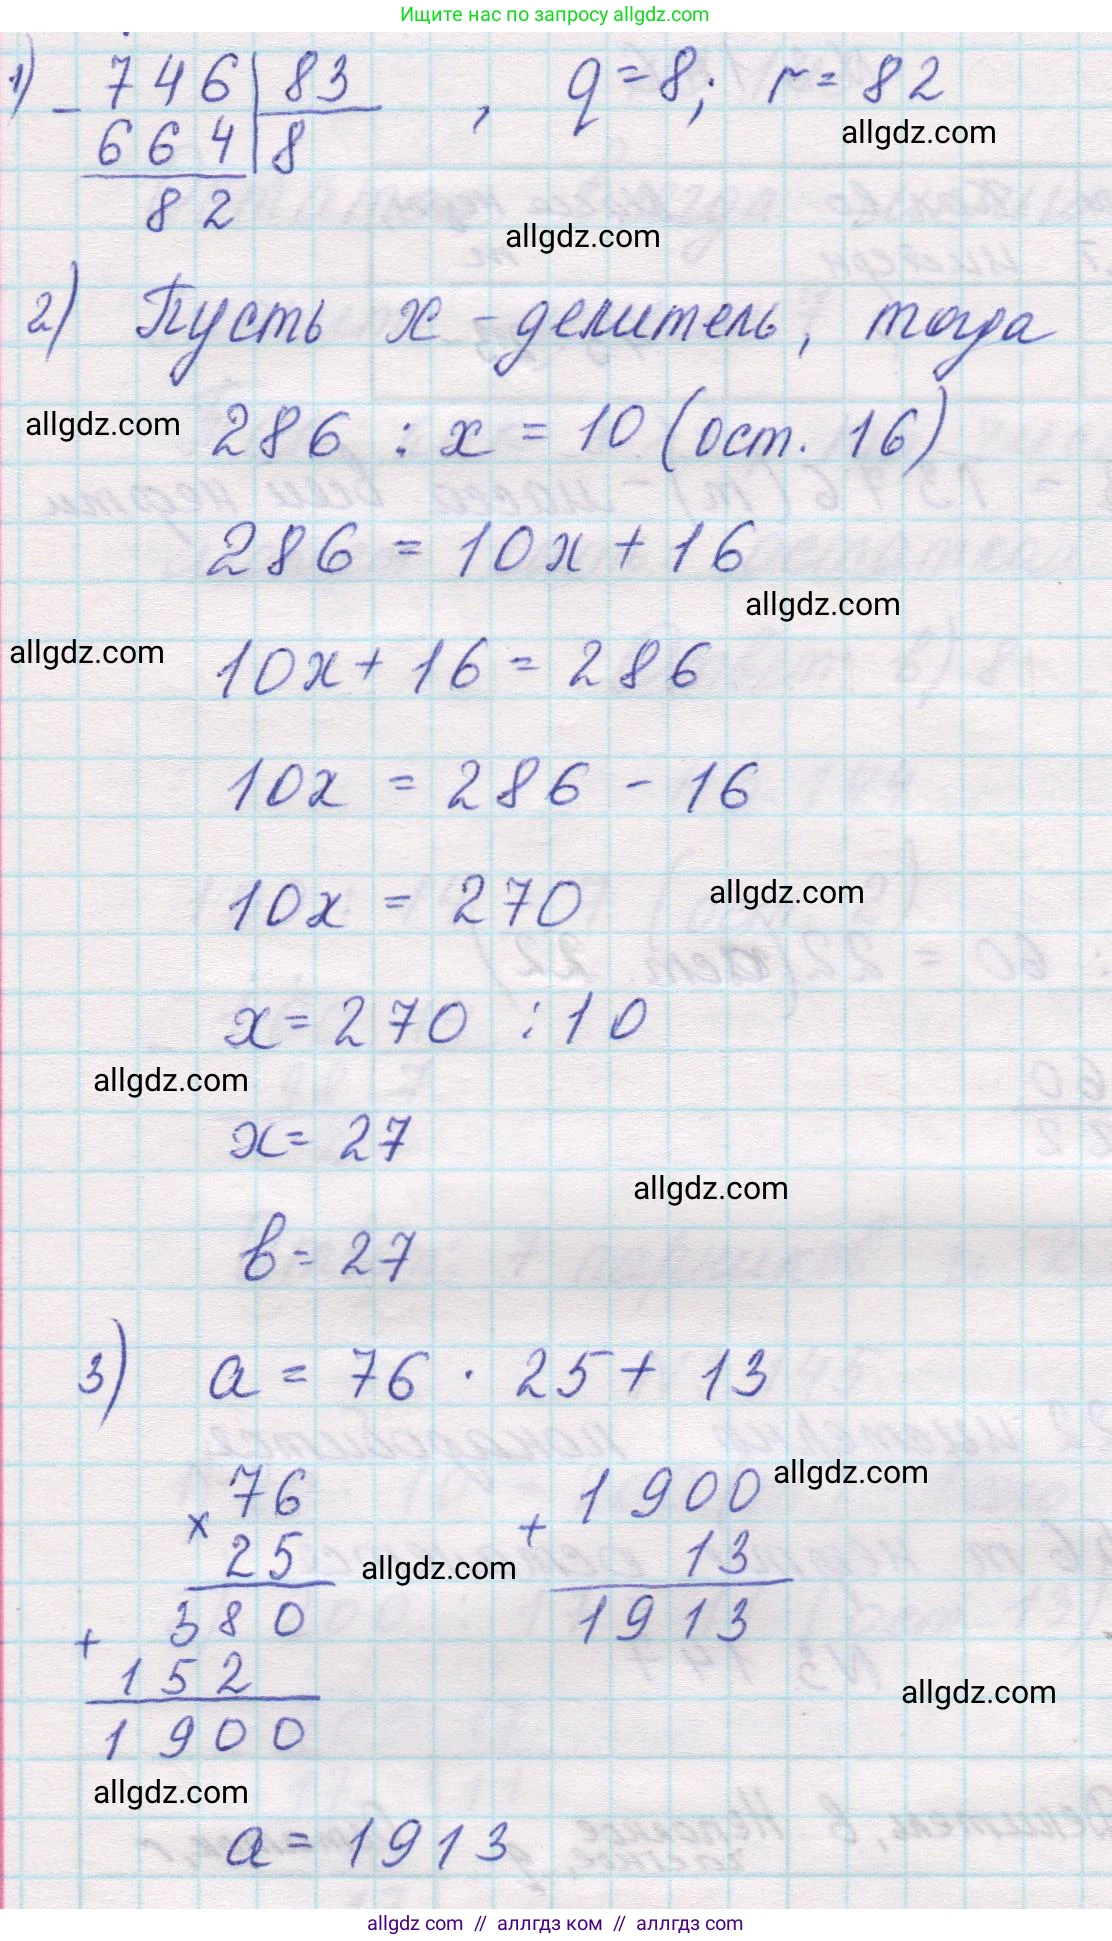 Ищите нас по запросу allgdz.com
1) - 746 | 83 , q = 8; r = 82
allgdz.com
664 | 8
82
allgdz.com
2) Пусть x - делитель, тогда
allgdz.com
286 : x = 10 (ост. 16)
286 = 10x + 16
allgdz.com
allgdz.com
10x + 16 = 286
10x = 286 - 16
allgdz.com
10x = 270
x = 270 : 10
allgdz.com
x = 27
allgdz.com
b = 27
3) a = 76 · 25 + 13
allgdz.com
× 76
25
+ 380
152
1900
allgdz.com
+ 1900
13
1913
allgdz.com
allgdz.com
a = 1913
allgdz com // аллгдз ком // аллгдз.com